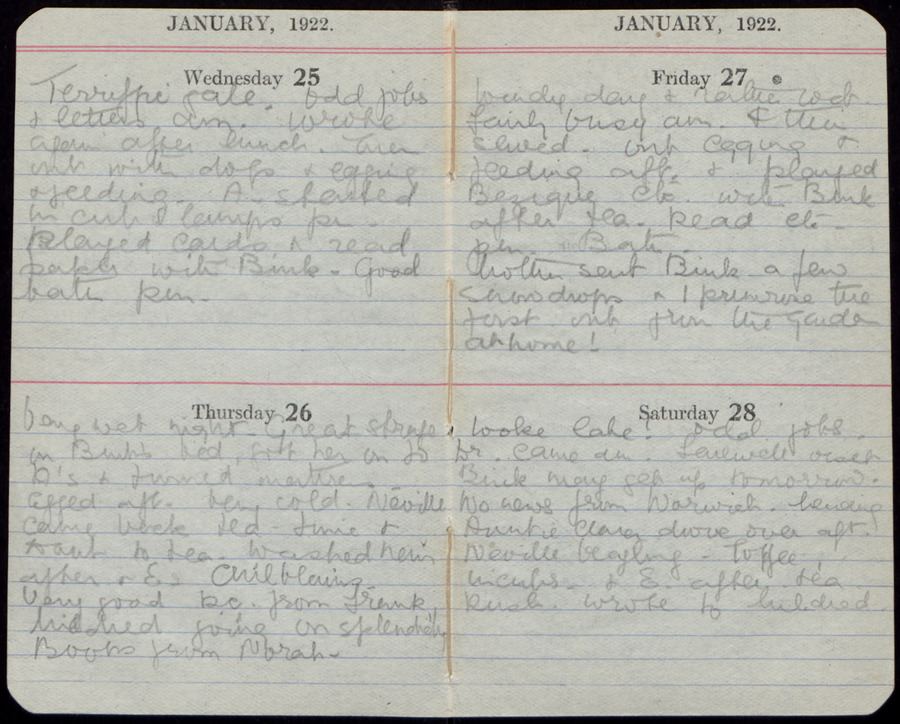 JANUARY, 1922.
Wednesday 25
Terrific gale. Odd jobs
& letters am. Wrote
again after lunch. Then
out with dogs & egging
& feeding. A. started
incub lamps pm.
Played cards & read
papers with Bink. Good
bath pm.
Thursday 26
Very wet night. Great
in Bink's bed, her in to
D's & turned mattress.
Egged aft. Very cold. Neville
came back ted - time &
to tea. Washed
after & E's Chilblains.
Very good p.c. from Frank,
Mildred going on splendidly
Books from Norah
JANUARY, 1922.
Friday 27
Windy day & rather wet.
Fairly busy am. & then
sewed. Out egging &
feeding aft. & played
Bezique etc. with Bink
after tea. Read etc.
pm. Bath.
Mother sent Bink a few
snowdrops & 1 primrose the
first out from the Garden
at home!
Saturday 28
Woke late! Odd jobs.
Dr. came am. Farewell
Bink may get up tomorrow.
No news from Warwick.
Auntie Clara drove over aft.
Neville - Toffee,
incubs. & E. after tea
Wrote to Mildred.